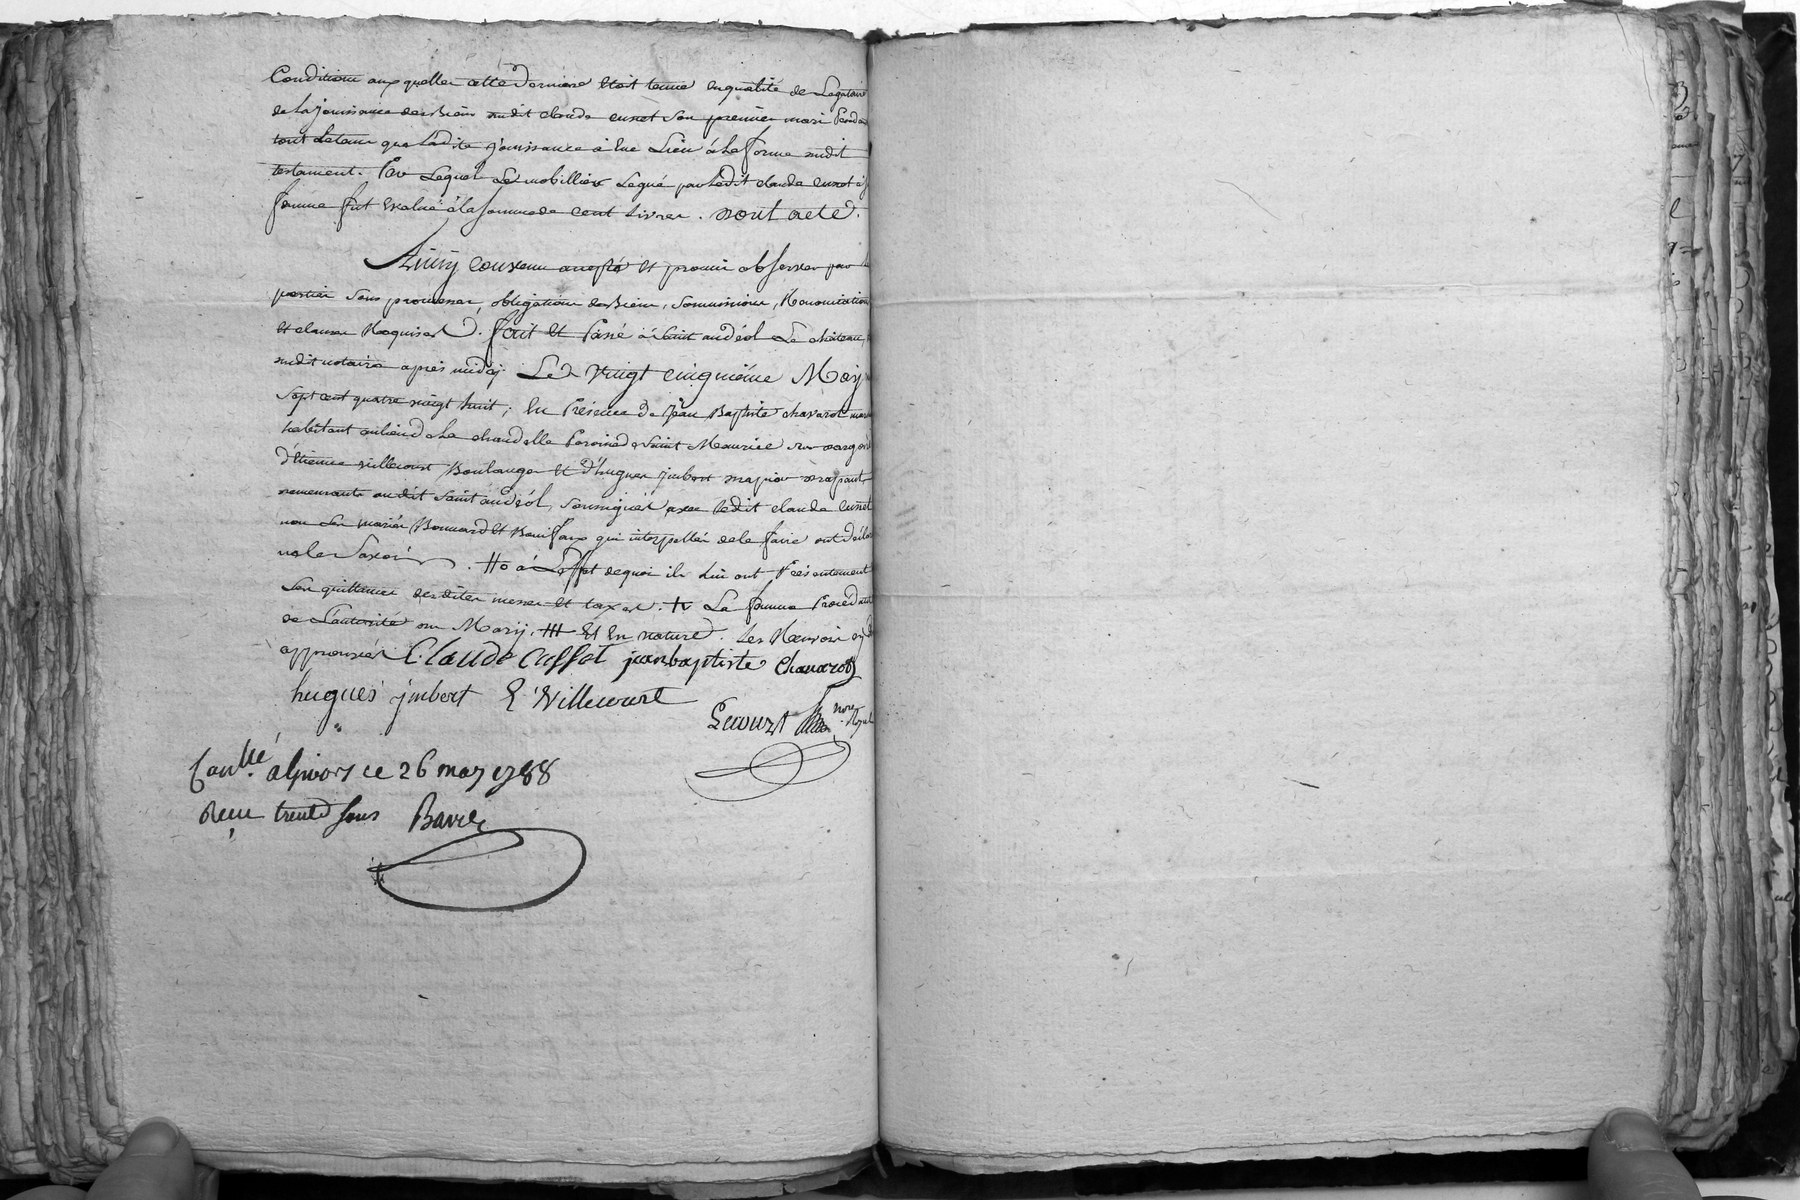 Conditions auxquelles cette derniere étoit tenue en qualité de Legataire
de La jouissance des Biens dudit claude cusset son premier mari Pendant
tout le tems que Ladite jouissance à lieu à La forme dudit
testament. Par Lequel Le mobillier Legué par Ledit claude cusset à
femme fut Evalué à la somme de cent Livres. Dont acte.
Ainsy convenu accepté et promis observer par
parties sous promesses, obligations de Biens, soumissions, Renonciations
et clauses Requises. fait et Passé à saint andéol Le château,
dudit notaire après midy. Le vingt cinquième May
sept cent quatre vingt huit; En Présence de Jean Baptiste chavarot
habitant au lieu de La chaudelle Paroisse de saint Maurice sur dargoire
d'étienne villecourt Boulanger et d'hugues jmbert major
demeurants audit saint andéol, soussignés avec Ledit claude cusset
non Les mariés Bonnard et Bonifaux qui interpellés de le faire ont déclaré
ne le savoir. # à L'effet de quoi ils Lui ont Présentement
son quittance desdites mises et taxes. + La femme Procedant
de L'autorité du Mary. ## Et En nature. Les Renvois
approuvés Claude Cusset jeanbaptiste Chavarot
hugues jmbert E Villecourt
Lecourt nore Royal
Conllé a givors ce 26 may 1788
Reçu trente sous Barre